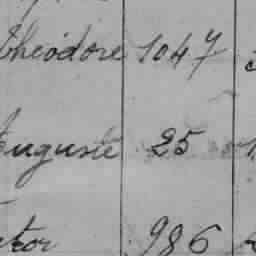 théodore 1047
Auguste 25
986